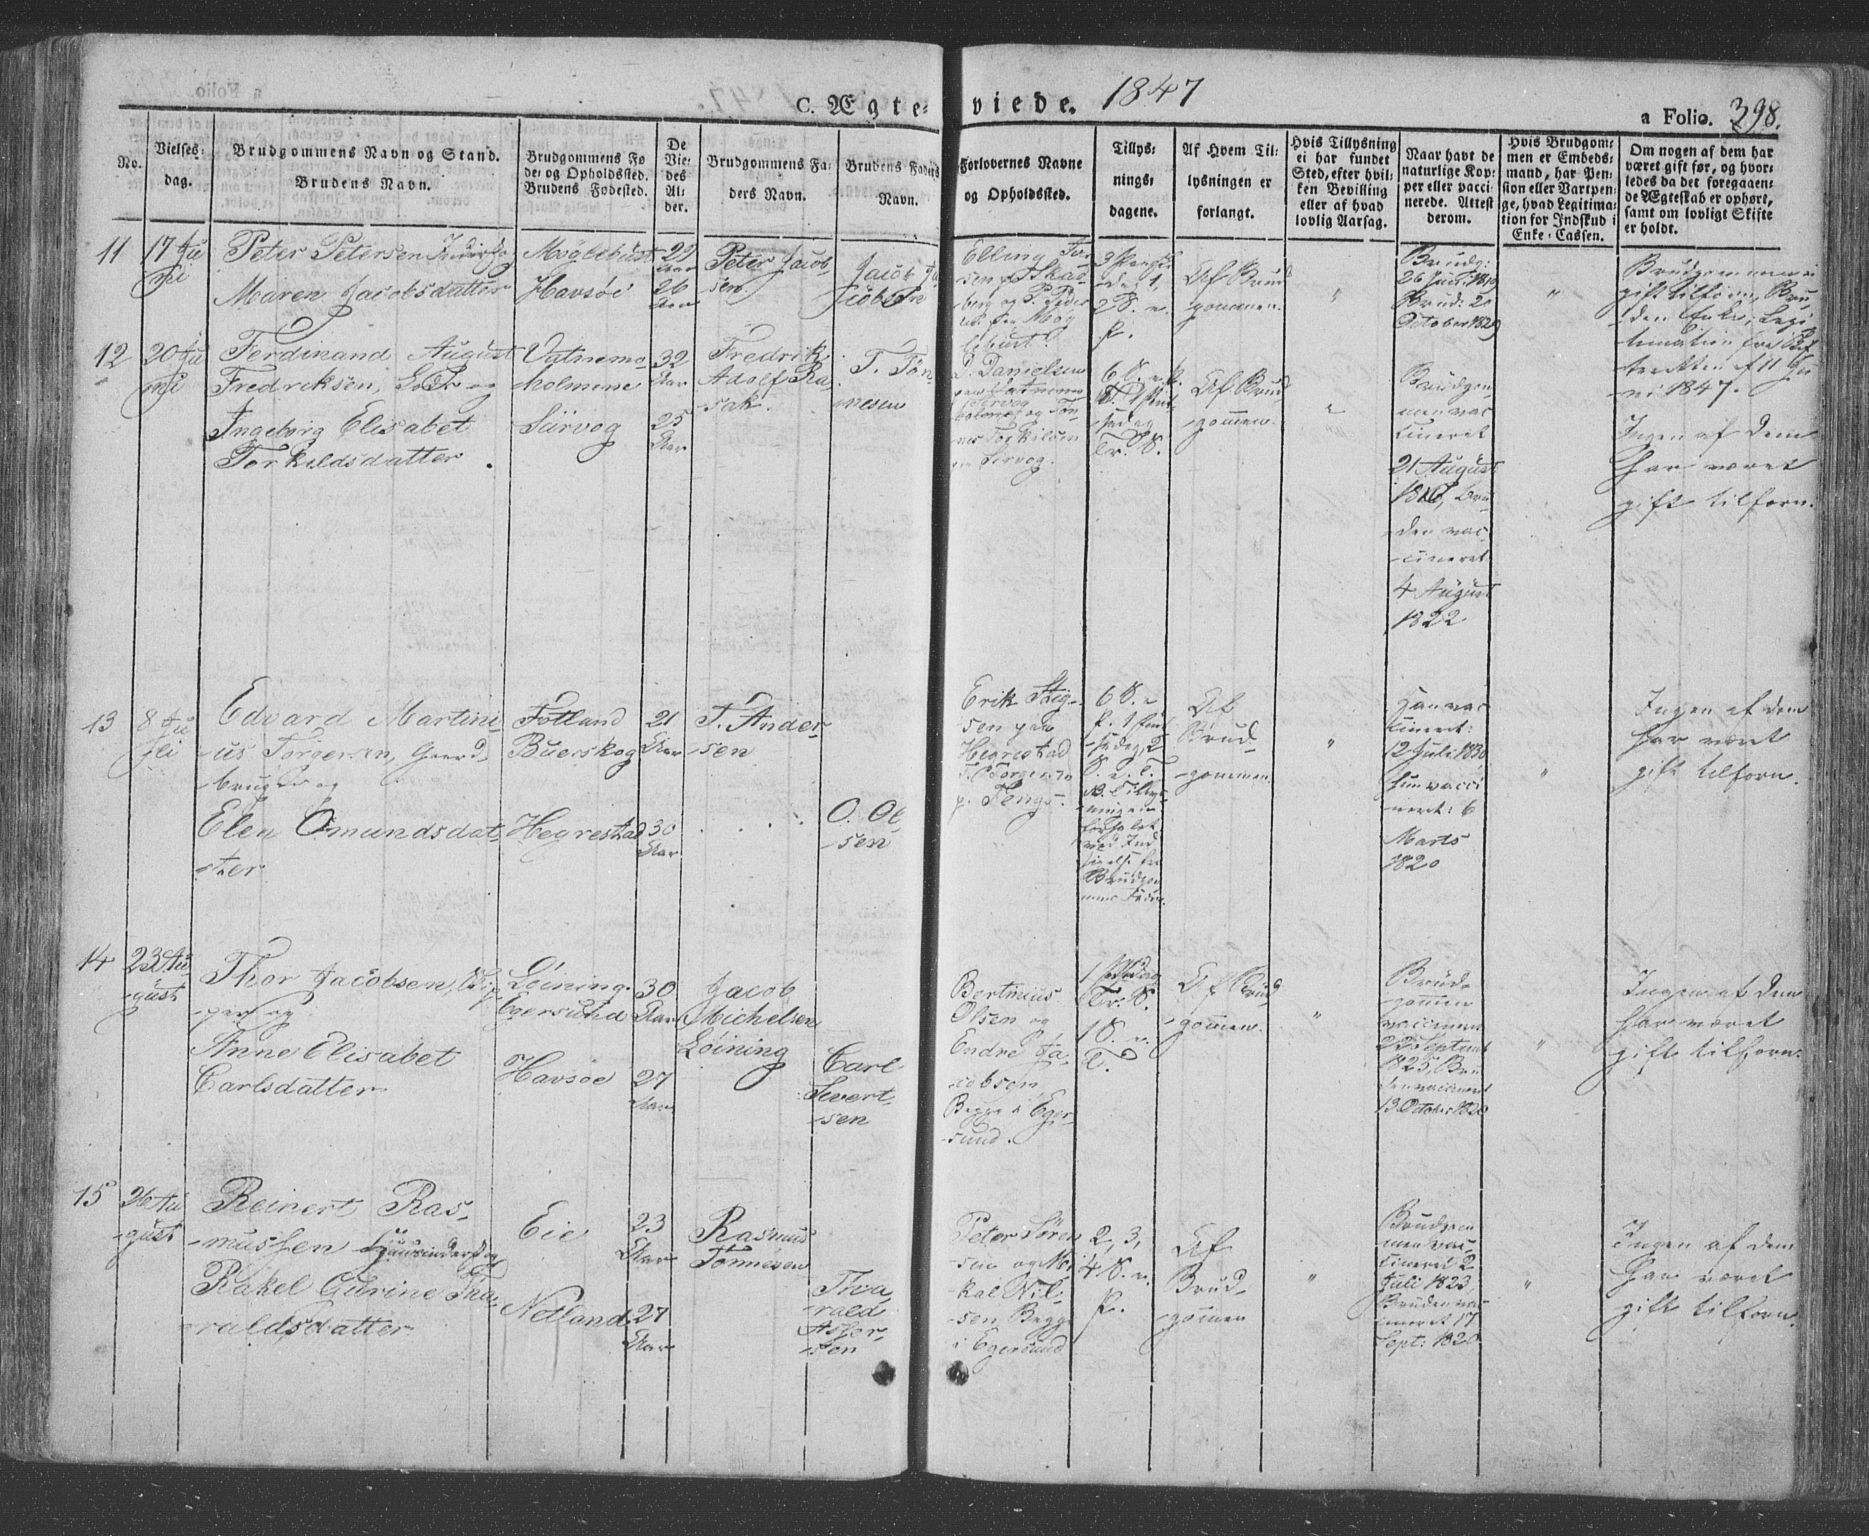 C. Ægte- viede. 1847
a Folio. 398.
No.
Vielses-
dag.
Brudgommens Navn og Stand.
Brudens Navn.
Brudgommens Fø
de- og Opholdssted.
Brudens Fødested.
De
Vie-
des
Al-
der.
Brudgommens Fa-
ders Navn.
Brudens Faders
Navn.
Forlovernes Navne
og Opholdssted.
Tillys-
nings-
dagene.
Af Hvem Til-
lysningen er
forlangt.
Hvis Tillysning
ei har fundet
Sted, efter hvil-
ken Bevilling
eller af hvad
lovlig Aarsag.
Naar havt de
naturlige Kop-
per eller vacci
nerede. Attest
derom.
Hvis Brudgom-
men er Embeds-
mand, har Pen-
sion eller Vartpen-
ge, hvad Legitima-
tion for Indskud i
Enke-Cassen.
Om nogen af dem har
været gift før, og hvor-
ledes da det foregaaen-
de Ægteskab er ophørt,
samt om lovligt Skifte
er holdt.
11
17 Ju
ni
Peter Petersen
Maren Jacobsdatter
Havsøe
29
Aar
26
Aar
Peter Jacob
sen
Jacob Ja
cobsen
Elling
2 S. e.
P.
Af Brud
gommen.
"
Brudg:
26 Juli 1819
Brud: 20
October 1829
"
Brudgommen ei
gift tilforn, Bru
den Enke, Legi
timation fra Skif
teretten af 11 Ju
ni 1847.
12
20 Ju
ni
Ferdinand August
Fredriksen, og
Ingeborg Elisabet
Torkildsdatter.
Vatnema
holmene
Sirvog
32
Aar
25
Aar
Fredrik
Adolf Ra
sak.
T. Tøn-
nesen
Danielsen
Sirvog.
Tr. S.
Af Brud
gommen.
"
Brudgom
men vac
cineret
21 August
Bru
den vac
cineret
4 August
1822
Ingen af dem
har været
gift tilforn.
13
8 Ju
li
Edvard Martini
us Torgersen, Gaard
bruger og
Elen Omundsdat
ter
Fotland
Buerskog
Hegrestad
21
Aar
30
Aar
T. Ander-
sen
O. Ol
sen
Erik Stig-
sen paa
Hegrestad
T. Torgersen
p. Tengs.
6 S. e
S. e. T.
Brudgom
mens Fader.
Af
Brud
gommen.
"
Han vac
cineret:
12 Juli 1830
Hun vacci
neret: 6
Marts
1820
"
Ingen af dem
har været
gift tilforn.
14
23 Au
gust
Thor Jacobsen,
og
Anne Elisabet
Carlsdatter
Løining.
Egersund
Havsøe
30
Aar
27
Aar
Jacob
Michelsen
Løining
Carl
Sivert-
sen
Bertinius
Olsen og
Endre Ja
cobsen
Begge i Eger
sund.
Tr. S.
1 S. e.
T.
Af Brud
gommen.
"
Brud
gommen
vaccineret
22 Septemb
1825, Bru
den vaccineret
13 October 1820
"
Ingen af dem
har været
gift tilforn.
15
26 Au
gust
Reinert Ras-
mussen og
Rakel Gurine Tha
raldsdatter
Eie
Netland
23
Aar
27
Aar
Rasmus
Tønnesen
Tha-
rald
Asser
sen
Peter Søren
sen og Mi
kal Nil-
sen Begge
i Egersund
2, 3,
4 S. e.
P.
Af
Brud
gommen
"
Brudgom
men vac-
cineret 2
Juli 1823,
Bruden vac
cineret 17
Sept: 1820
"
Ingen af dem
har været
gift tilforn.